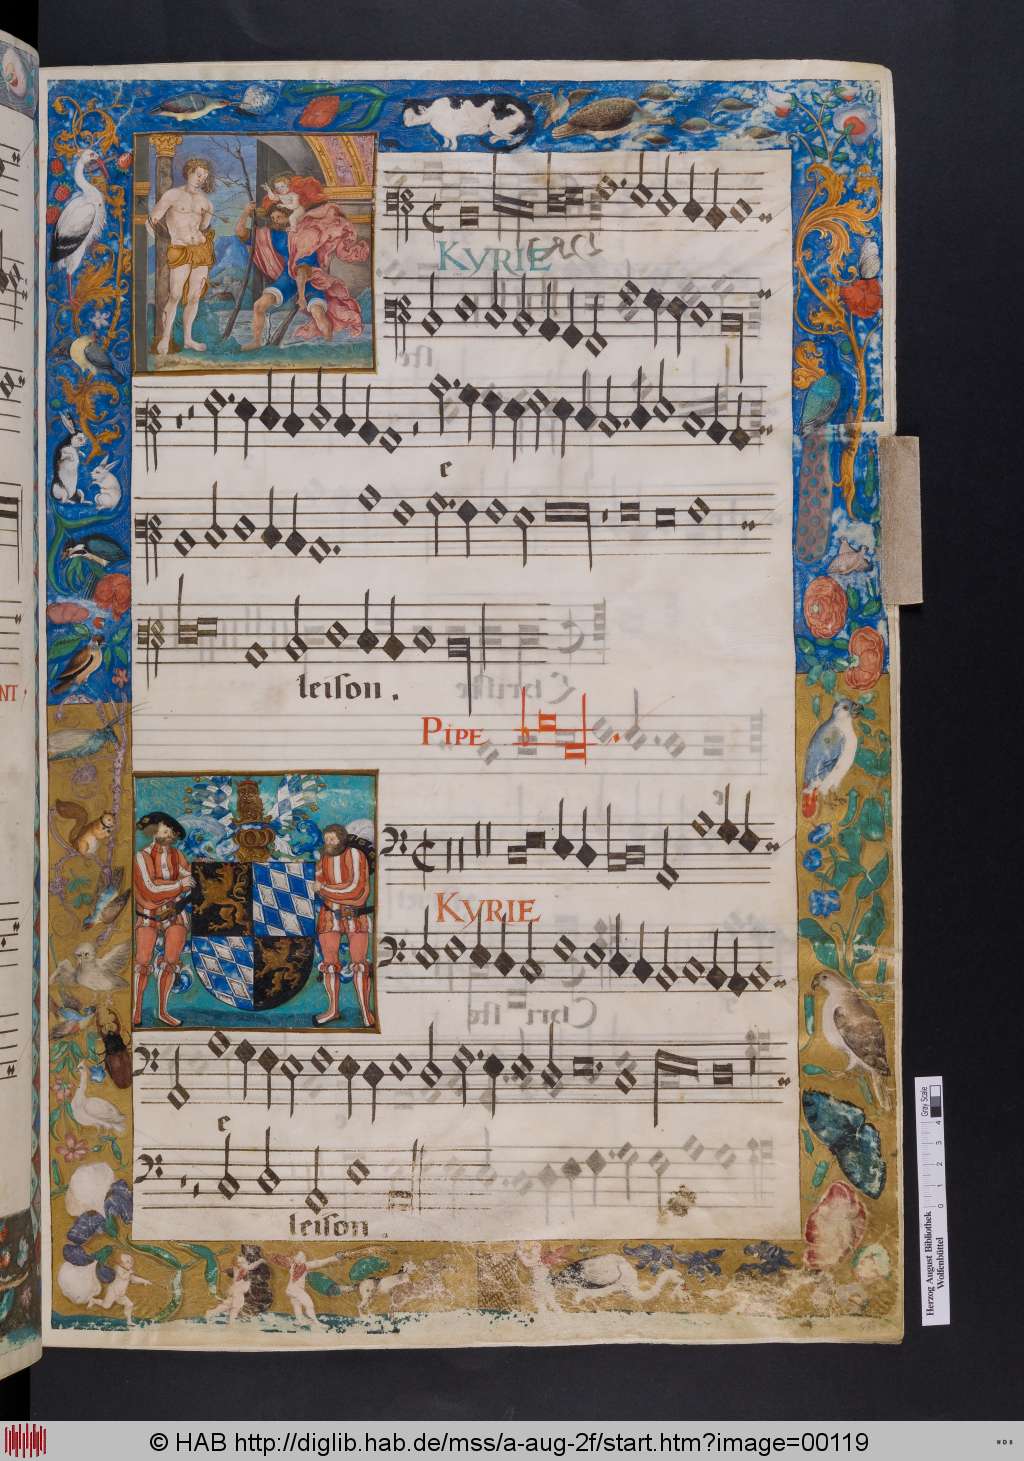 KYRIE
e
leison.
NT
PIPE
KYRIE
e
leison.
Gray Scale
0 1 2 3 4
Herzog August Bibliothek
Wolfenbüttel
© HAB http://diglib.hab.de/mss/a-aug-2f/start.htm?image=00119